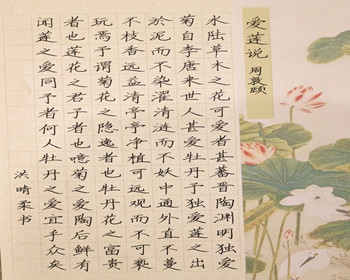 爱莲说
周敦颐
水陆草木之花可爱者甚蕃晋陶渊明独爱
菊自李唐来世人甚爱牡丹予独爱莲之出
淤泥而不染濯清涟而不妖中通外直不蔓
不枝香远益清亭亭净植可远观而不可亵
玩焉予谓菊花之隐逸者也牡丹花之富贵
者也莲花之君子者也噫菊之爱陶后鲜有
闻莲之爱同予者何人牡丹之爱宜乎众矣
洪晴柔书